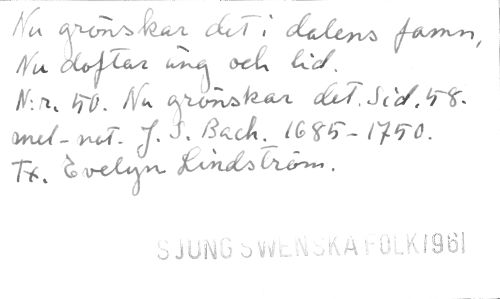 Nu grönskar det i dalens famn,
Nu doftar äng och lid.
N:r. 50. Nu grönskar det. Sid. 58.
mel-not. J. S. Bach. 1685-1750.
Tx. Evelyn Lindström.
SJUNG SVENSKA FOLK 1961